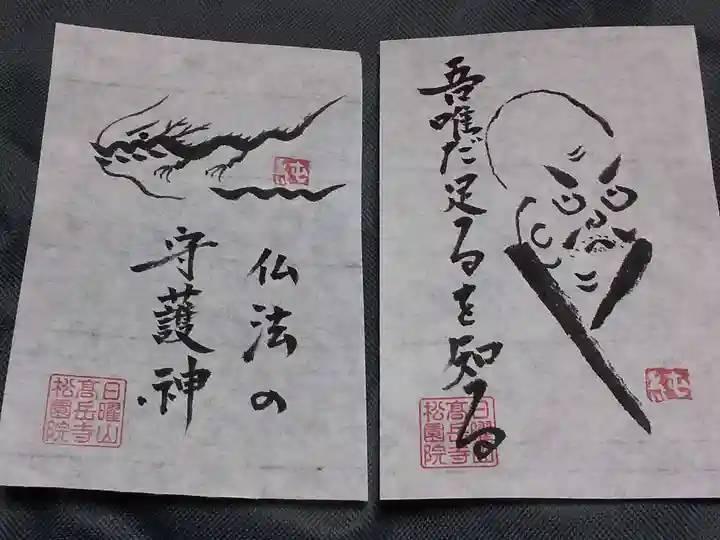 仏法の
守護神
純
日曜山
高岳寺
松園院
吾唯だ足るを知る
純
日曜山
高岳寺
松園院